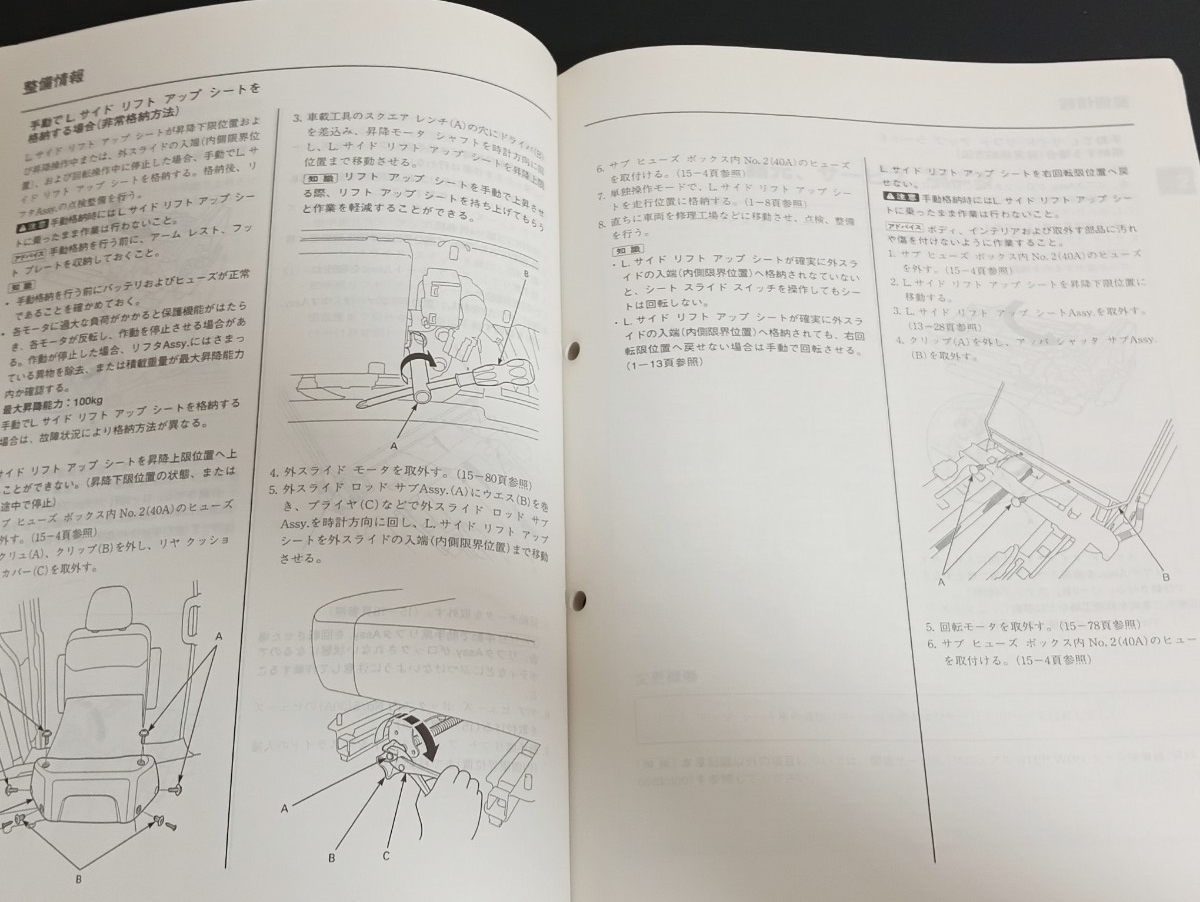 整備情報
手動でL サイド リフト アップ シートを
格納する場合(非常格納方法)
L サイド リフト アップ シートが昇降下限位置およ
び昇降操作中または、外スライドの入端(内側限界位
置)、および回転操作中に停止した場合、手動でL サ
イド リフト アップ シートを格納する。格納後、リ
フタAssy.の点検整備を行う。
▲注意 手動格納時にはL サイド リフト アップ シー
トに乗ったまま作業は行わないこと。
アドバイス 手動格納を行う前に、アーム レスト、フッ
ト プレートを収納しておくこと。
知識
・ 手動格納を行う前にバッテリおよびヒューズが正常
であることを確かめておく。
・ 各モータに過大な負荷がかかると保護機能がはたら
き、各モータが反転し、作動を停止させる場合があ
る。作動が停止した場合、リフタAssy.にはさまっ
ている異物を除去、または積載重量が最大昇降能力
内か確認する。
最大昇降能力：100kg
手動でL サイド リフト アップ シートを格納する
場合は、故障状況により格納方法が異なる。
サイド リフト アップ シートを昇降上限位置へ上
ことができない。(昇降下限位置の状態、または
途中で停止)
ブ ヒューズ ボックス内 No.2(40A)のヒューズ
外す。(15−4頁参照)
クリュ(A)、クリップ(B)を外し、リヤ クッショ
カバー(C)を取外す。
A
B
3. 車載工具のスクエア レンチ(A)の穴にドライバ(B)
を差込み、昇降モータ シャフトを時計方向に回
し、L サイド リフト アップ シートを昇降上限
位置まで移動させる。
知識 リフト アップ シートを手動で上昇させ
る際、リフト アップ シートを持ち上げてもらう
と作業を軽減することができる。
B
A
4. 外スライド モータを取外す。(15−80頁参照)
5. 外スライド ロッド サブAssy.(A)にウエス(B)を巻
き、プライヤ(C)などで外スライド ロッド サブ
Assy.を時計方向に回し、L サイド リフト アップ
シートを外スライドの入端(内側限界位置)まで移動
させる。
A
B
C
6. サブ ヒューズ ボックス内 No.2(40A)のヒューズ
を取付ける。(15−4頁参照)
7. 単独操作モードで、L サイド リフト アップ シー
トを走行位置に格納する。(1−8頁参照)
8. 直ちに車両を修理工場などに移動させ、点検、整備
を行う。
知識
・ L サイド リフト アップ シートが確実に外スラ
イドの入端(内側限界位置)へ格納されなていない
と、シート スライド スイッチを操作してもシー
トは回転しない。
・ L サイド リフト アップ シートが確実に外スラ
イドの入端(内側限界位置)へ格納されても、右回
転限位置へ戻せない場合は手動で回転させる。
(1−13頁参照)
L サイド リフト アップ シートを右回転限位置へ戻
せない。
▲注意 手動格納時にはL サイド リフト アップ シー
トに乗ったまま作業は行わないこと。
アドバイス ボディ、インテリアおよび取外す部品に汚れ
や傷を付けないように作業すること。
1. サブ ヒューズ ボックス内 No.2(40A)のヒューズ
を外す。(15−4頁参照)
2. L サイド リフト アップ シートを昇降下限位置に
移動する。
3. L サイド リフト アップ シートAssy.を取外す。
(13−28頁参照)
4. クリップ(A)を外し、アッパ シャッタ サブAssy.
(B)を取外す。
A
B
5. 回転モータを取外す。(15−78頁参照)
6. サブ ヒューズ ボックス内 No.2(40A)のヒュー
を取付ける。(15−4頁参照)